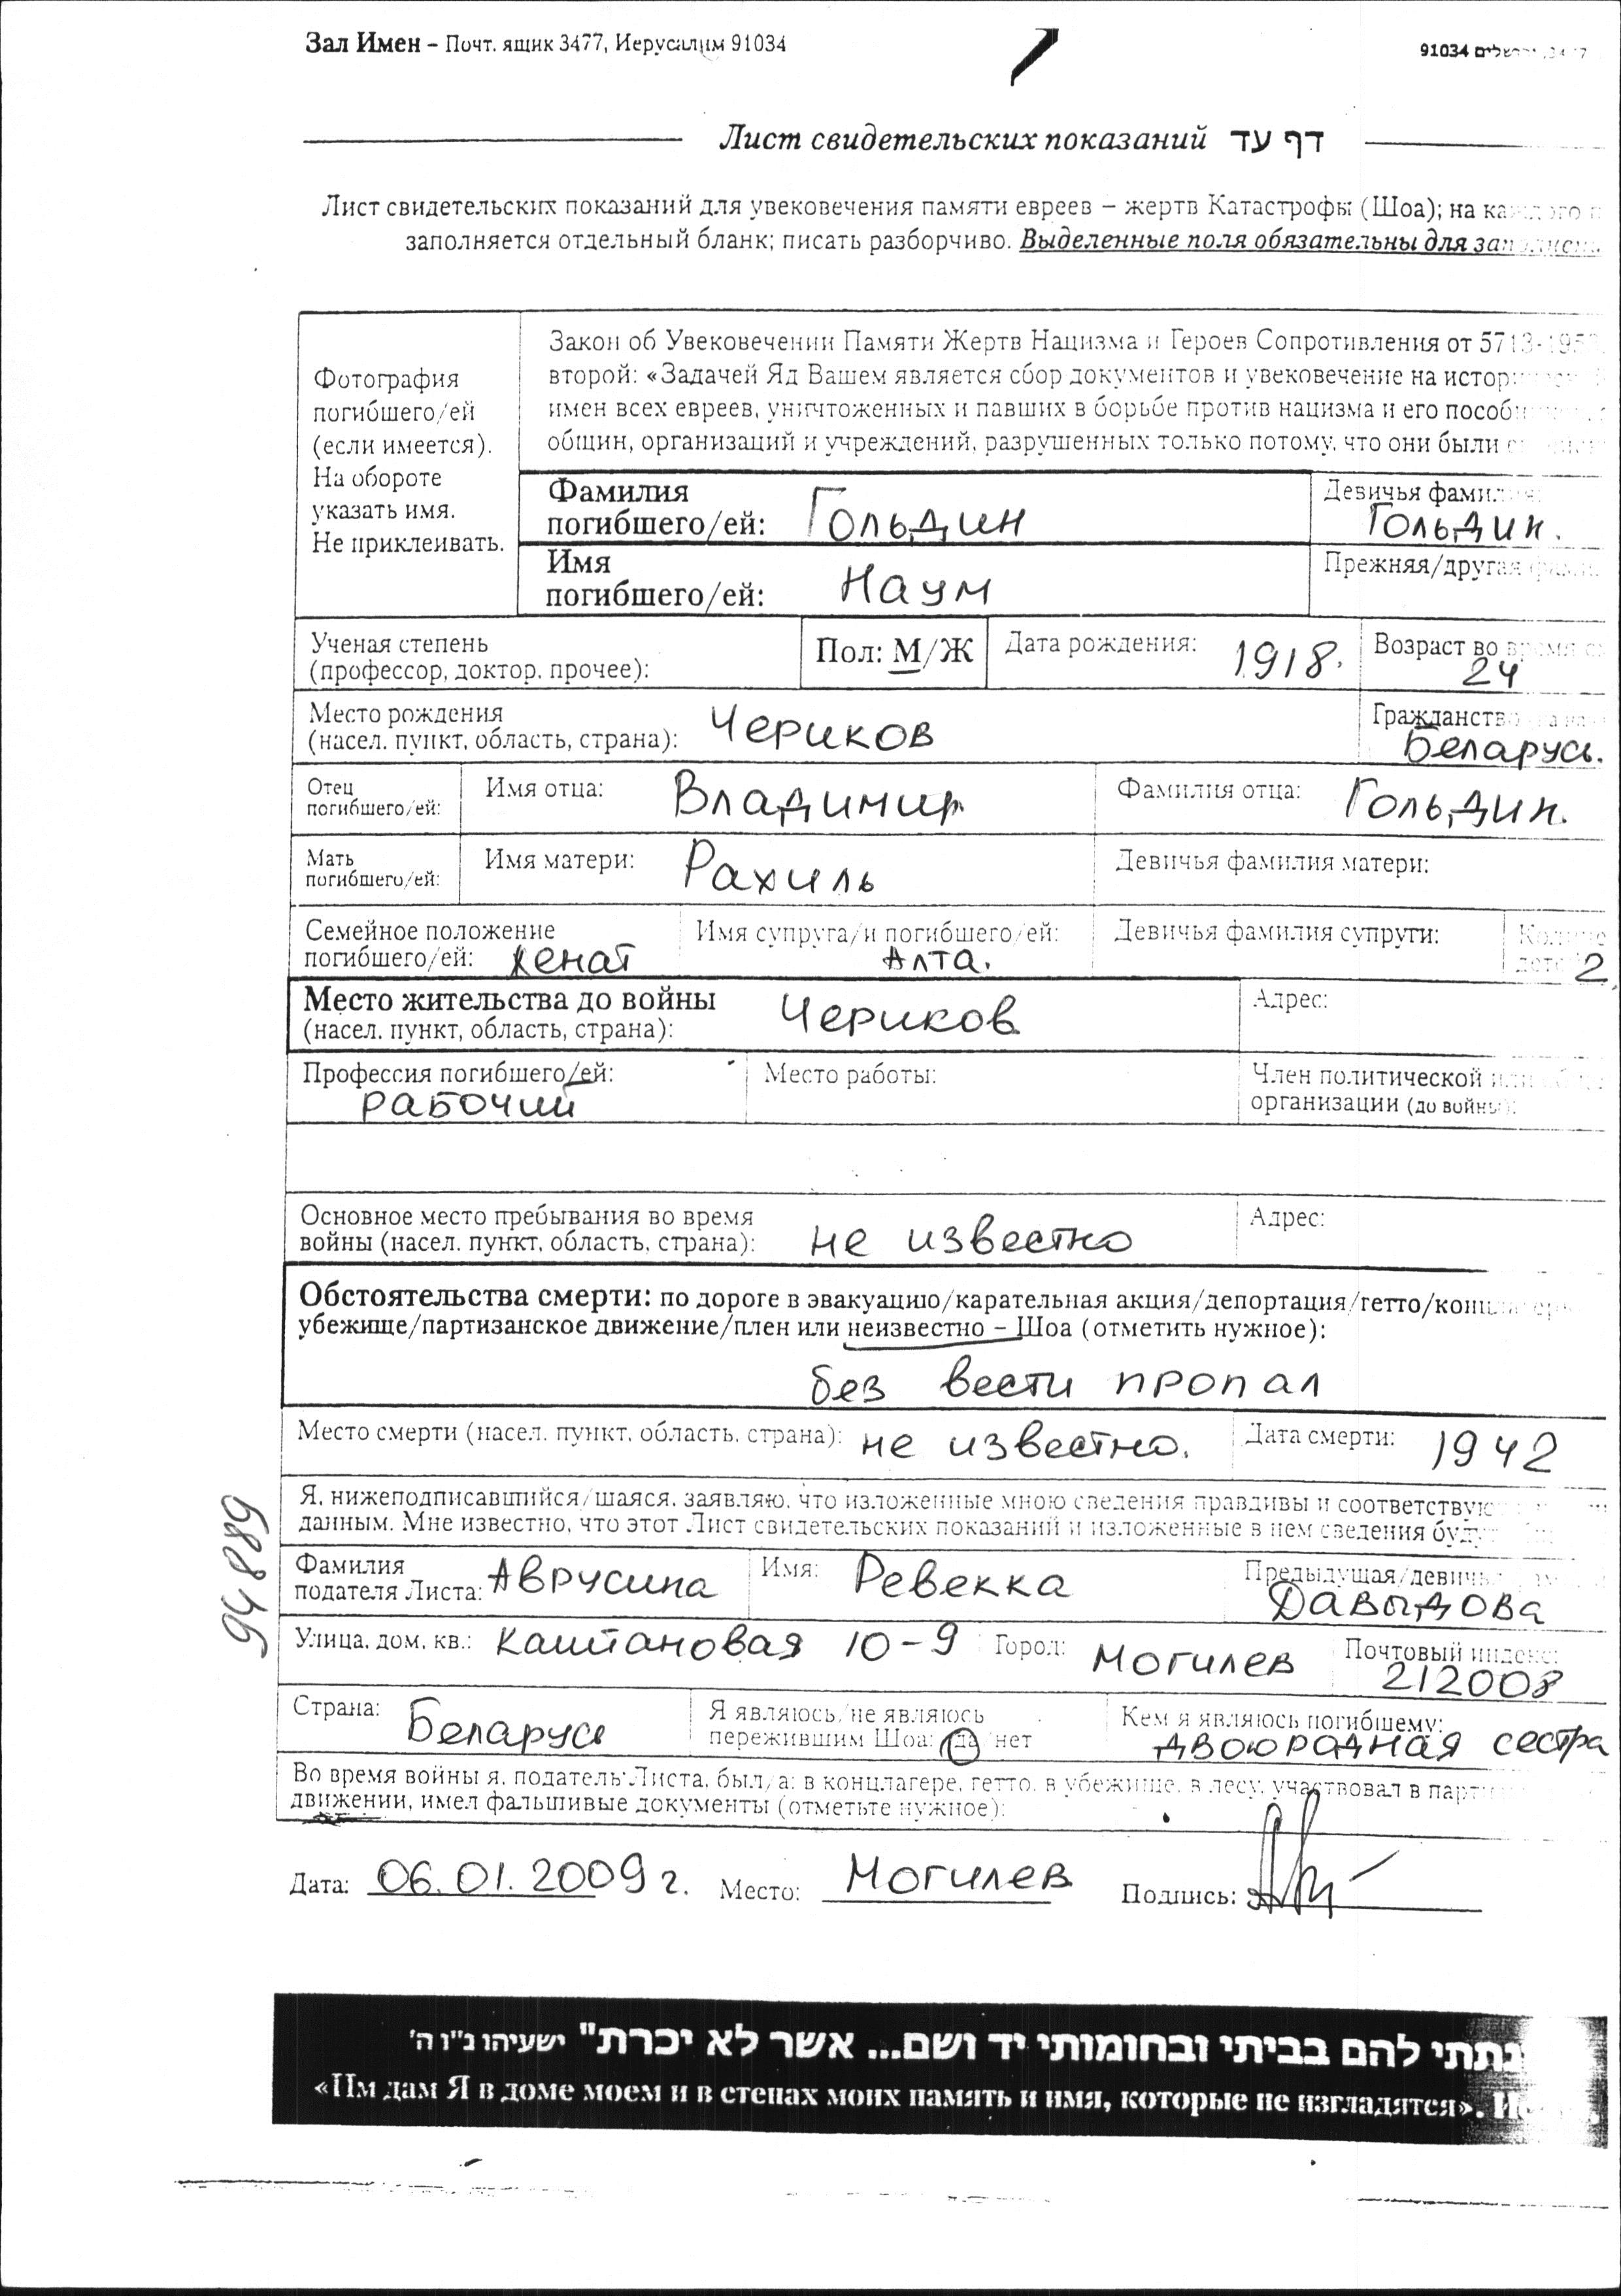 Зал Имен – Почт. ящик 3477, Иерусалим 91034
91034
Лист свидетельских показаний דף עד
Лист свидетельских показаний для увековечения памяти евреев – жертв Катастрофы (Шоа); на
заполняется отдельный бланк; писать разборчиво. Выделенные поля обязательны для
Фотография
погибшего/ей
(если имеется).
На обороте
указать имя.
Не приклеивать.
Закон об Увековечении Памяти Жертв Нацизма и Героев Сопротивления от 5713-195
второй: «Задачей Яд Вашем является сбор документов и увековечение на
имен всех евреев, уничтоженных и павших в борьбе против нацизма и его
общин, организаций и учреждений, разрушенных только потому, что они были
Фамилия
погибшего/ей: Гольдин
Девичья фамилия:
Гольдин.
Имя
погибшего/ей: Наум
Прежняя/другая
Ученая степень
(профессор, доктор, прочее):
Пол: М/Ж
Дата рождения: 1918.
Возраст во время
24
Место рождения
(насел. пункт, область, страна): Чериков
Гражданство
Беларусь.
Отец
погибшего/ей:
Имя отца: Владимир
Фамилия отца: Гольдин.
Мать
погибшего/ей:
Имя матери: Рахиль
Девичья фамилия матери:
Семейное положение
погибшего/ей: женат
Имя супруга/и погибшего/ей:
Алта.
Девичья фамилия супруги:
2
Место жительства до войны
(насел. пункт, область, страна): Чериков
Адрес:
Профессия погибшего/ей:
рабочий
Место работы:
Член политической
организации (до войны):
Основное место пребывания во время
войны (насел. пункт, область, страна): не известно
Адрес:
Обстоятельства смерти: по дороге в эвакуацию/карательная акция/депортация/гетто/
убежище/партизанское движение/плен или неизвестно – Шоа (отметить нужное):
без вести пропал
Место смерти (насел. пункт, область, страна): не известно.
Дата смерти: 1942
Я, нижеподписавшийся/шаяся, заявляю, что изложенные мною сведения правдивы и
данным. Мне известно, что этот Лист свидетельских показаний и изложенные в нем сведения
94889
Фамилия
подателя Листа: Аврусина
Имя: Ревекка
Предыдущая/
Давыдова
Улица, дом, кв.: Каштановая 10-9
Город: Могилев
Почтовый индекс:
212008
Страна: Беларусь
Я являюсь/не являюсь
пережившим Шоа: да/нет
Кем я являюсь погибшему:
двоюродная сестра
Во время войны я, податель Листа, был/а: в концлагере, гетто, в убежище, в лесу, участвовал в
движении, имел фальшивые документы (отметьте нужное):
Дата: 06.01.2009 г. Место: Могилев Подпись:
נתתי להם בביתי ובחומותי יד ושם... אשר לא יכרת" ישעיהו נ"ו ה'
«Им дам Я в доме моем и в стенах моих память и имя, которые не изгладятся».